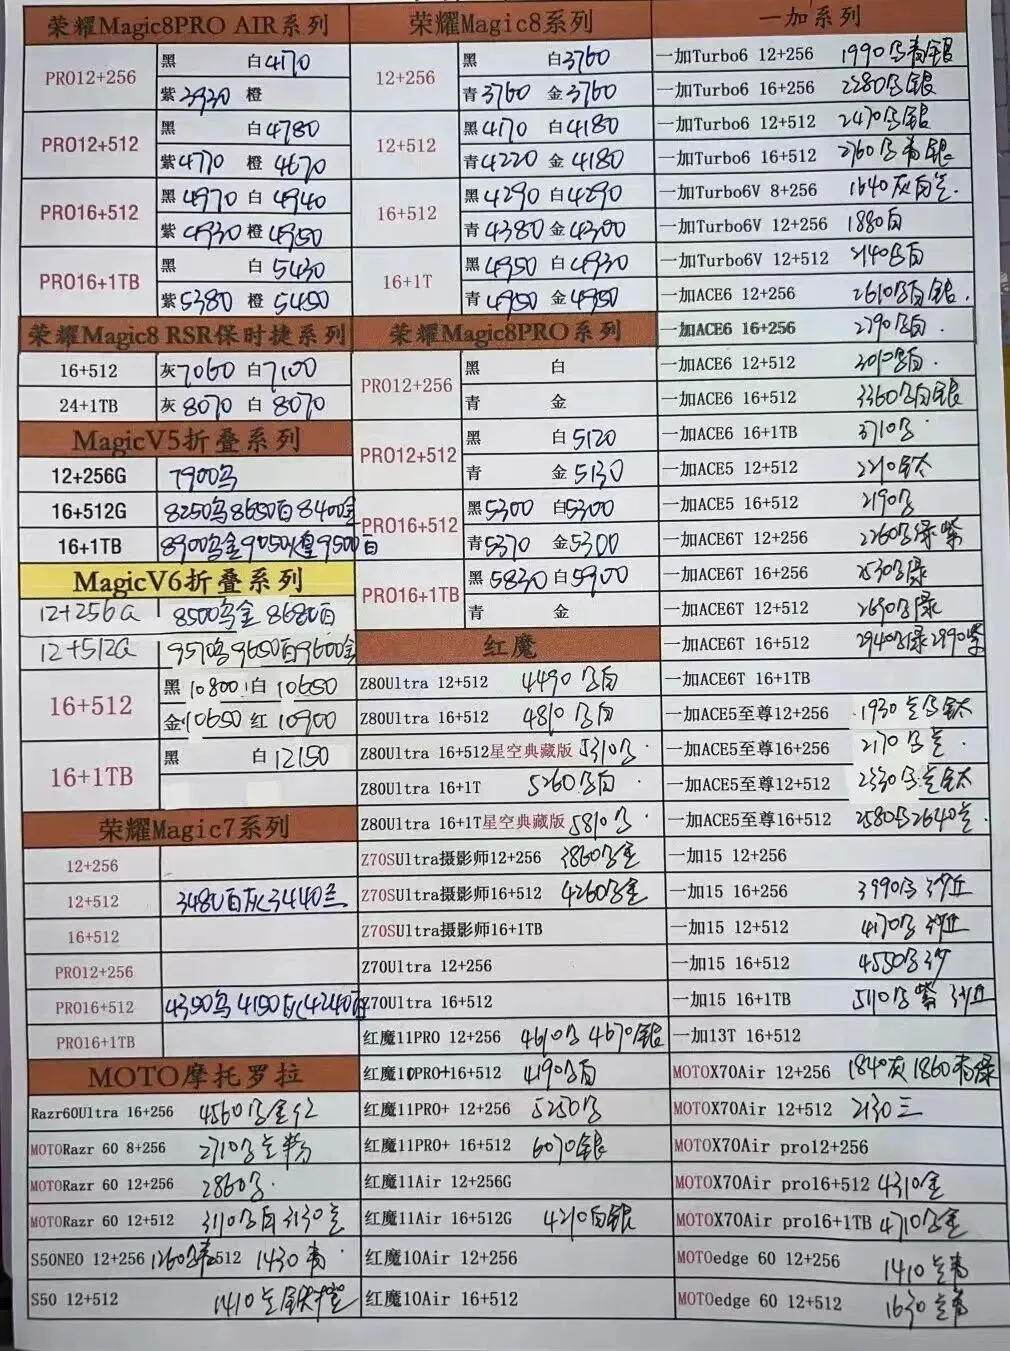 荣耀Magic8PRO AIR系列
PRO12+256
黑 白4170
紫3930 橙
PRO12+512
黑 白4780
紫4770 橙4670
PRO16+512
黑4970 白4940
紫4930 橙4950
PRO16+1TB
黑 白5430
紫5380 橙5450
荣耀Magic8 RSR保时捷系列
16+512 灰7060 白7100
24+1TB 灰8070 白8070
MagicV5折叠系列
12+256G 7900乌
16+512G 8250乌8650白8400金
16+1TB 8900乌金9050煌9500白
MagicV6折叠系列
12+256G 8500乌金 8680白
12+512G 9570乌9650白9600金
16+512
黑10800 白10650
金10650 红10900
16+1TB
黑 白12150
荣耀Magic7系列
12+256
12+512 3480白灰3440兰
16+512
PRO12+256
PRO16+512 4350乌4150 4240白
PRO16+1TB
MOTO摩托罗拉
Razr60Ultra 16+256 4560
MOTORazr 60 8+256 2710
MOTORazr 60 12+256 2860
MOTORazr 60 12+512 3110 3130
S50NEO 12+256 1260 512 1430
S50 12+512 1410
荣耀Magic8系列
12+256
黑 白3760
青3760 金3760
12+512
黑4170 白4180
青4220 金4180
16+512
黑4290 白4290
青4380 金4300
16+1T
黑4950 白4930
青4950 金4950
荣耀Magic8PRO系列
PRO12+256
黑 白
青 金
PRO12+512
黑 白5120
青 金5130
PRO16+512
黑5300 白5300
青5370 金5300
PRO16+1TB
黑5830 白5900
青 金
红魔
Z80Ultra 12+512 4490乌白
Z80Ultra 16+512 4810乌白
Z80Ultra 16+512星空典藏版 5310乌
Z80Ultra 16+1T 5260乌白
Z80Ultra 16+1T星空典藏版 5810乌
Z70SUltra摄影师12+256 3860乌金
Z70SUltra摄影师16+512 4260乌金
Z70SUltra摄影师16+1TB
Z70Ultra 12+256
Z70Ultra 16+512
红魔11PRO 12+256 4610乌 4670银
红魔10PRO+16+512 4190乌白
红魔11PRO+ 12+256 5250乌
红魔11PRO+ 16+512 6070银
红魔11Air 12+256G
红魔11Air 16+512G 4210白银
红魔10Air 12+256
红魔10Air 16+512
一加系列
一加Turbo6 12+256 1990乌青银
一加Turbo6 16+256 2280乌银
一加Turbo6 12+512 2470乌银
一加Turbo6 16+512 2760乌青银
一加Turbo6V 8+256 1640灰白兰
一加Turbo6V 12+256 1880白
一加Turbo6V 12+512 2140乌白
一加ACE6 12+256 2610乌白银
一加ACE6 16+256 2790乌白
一加ACE6 12+512 3010乌白
一加ACE6 16+512 3360乌白银
一加ACE6 16+1TB 3710乌
一加ACE5 12+512 2210钛
一加ACE5 16+512 2190乌
一加ACE6T 12+256 2260乌绿紫
一加ACE6T 16+256 2530乌绿
一加ACE6T 12+512 2690乌绿
一加ACE6T 16+512 2940乌绿2990紫
一加ACE6T 16+1TB
一加ACE5至尊12+256 1930兰乌钛
一加ACE5至尊16+256 2170乌兰
一加ACE5至尊12+512 2330乌兰钛
一加ACE5至尊16+512 2580乌2640兰
一加15 12+256
一加15 16+256 3990乌 沙丘
一加15 12+512 4170乌 沙丘
一加15 16+512 4550乌沙
一加15 16+1TB 5110乌紫 沙丘
一加13T 16+512
MOTOX70Air 12+256 1840灰1860青绿
MOTOX70Air 12+512 2130三
MOTOX70Air pro12+256
MOTOX70Air pro16+512 4310金
MOTOX70Air pro16+1TB 4710乌金
MOTOedge 60 12+256 1410兰青
MOTOedge 60 12+512 1630兰青